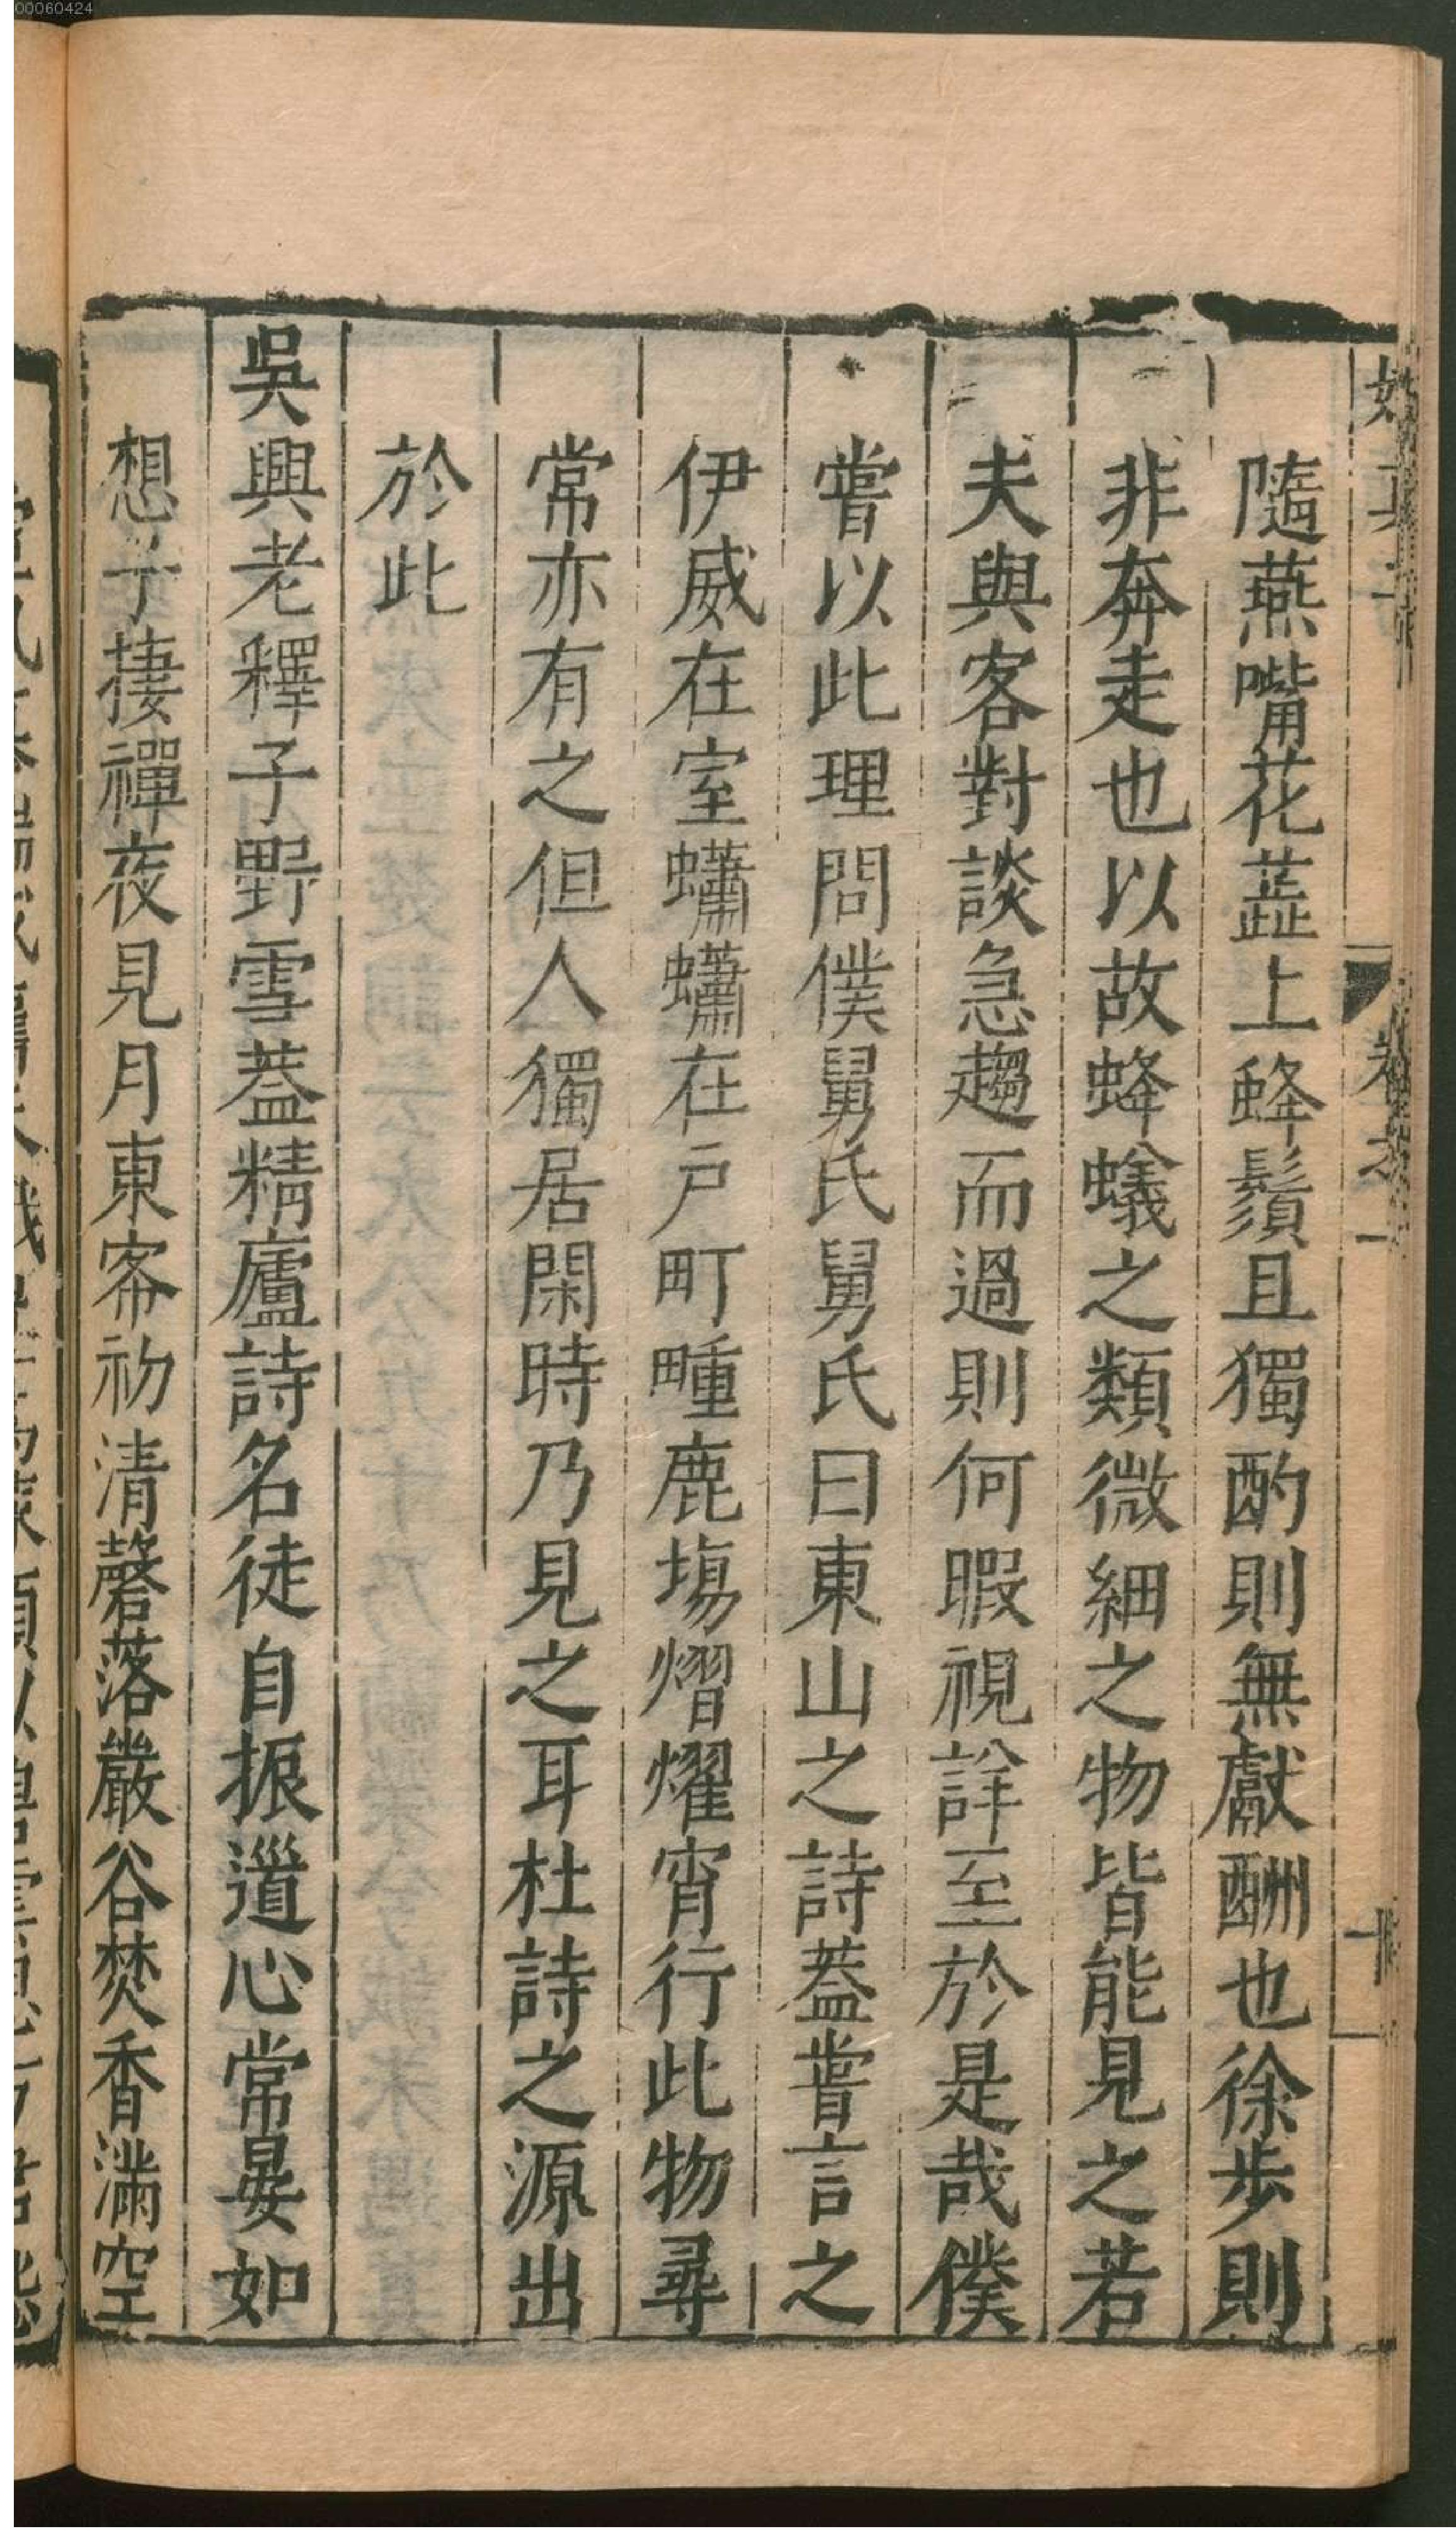 00060424
隨燕嘴花蘂上蜂鬚且獨酌則無獻酬也徐步則
非奔走也以故蜂蟻之類微細之物皆能見之若
夫與客對談急趨而過則何暇視詳至於是哉僕
嘗以此理問僕舅氏舅氏曰東山之詩葢嘗言之
伊威在室蠨蠨在戶町畽鹿塲熠燿宵行此物尋
常亦有之但人獨居閑時乃見之耳杜詩之源出
於此
吳興老釋子野雪葢精廬詩名徒自振道心常晏如
想子捿禪夜見月東窓初清磬落巖谷焚香滿空